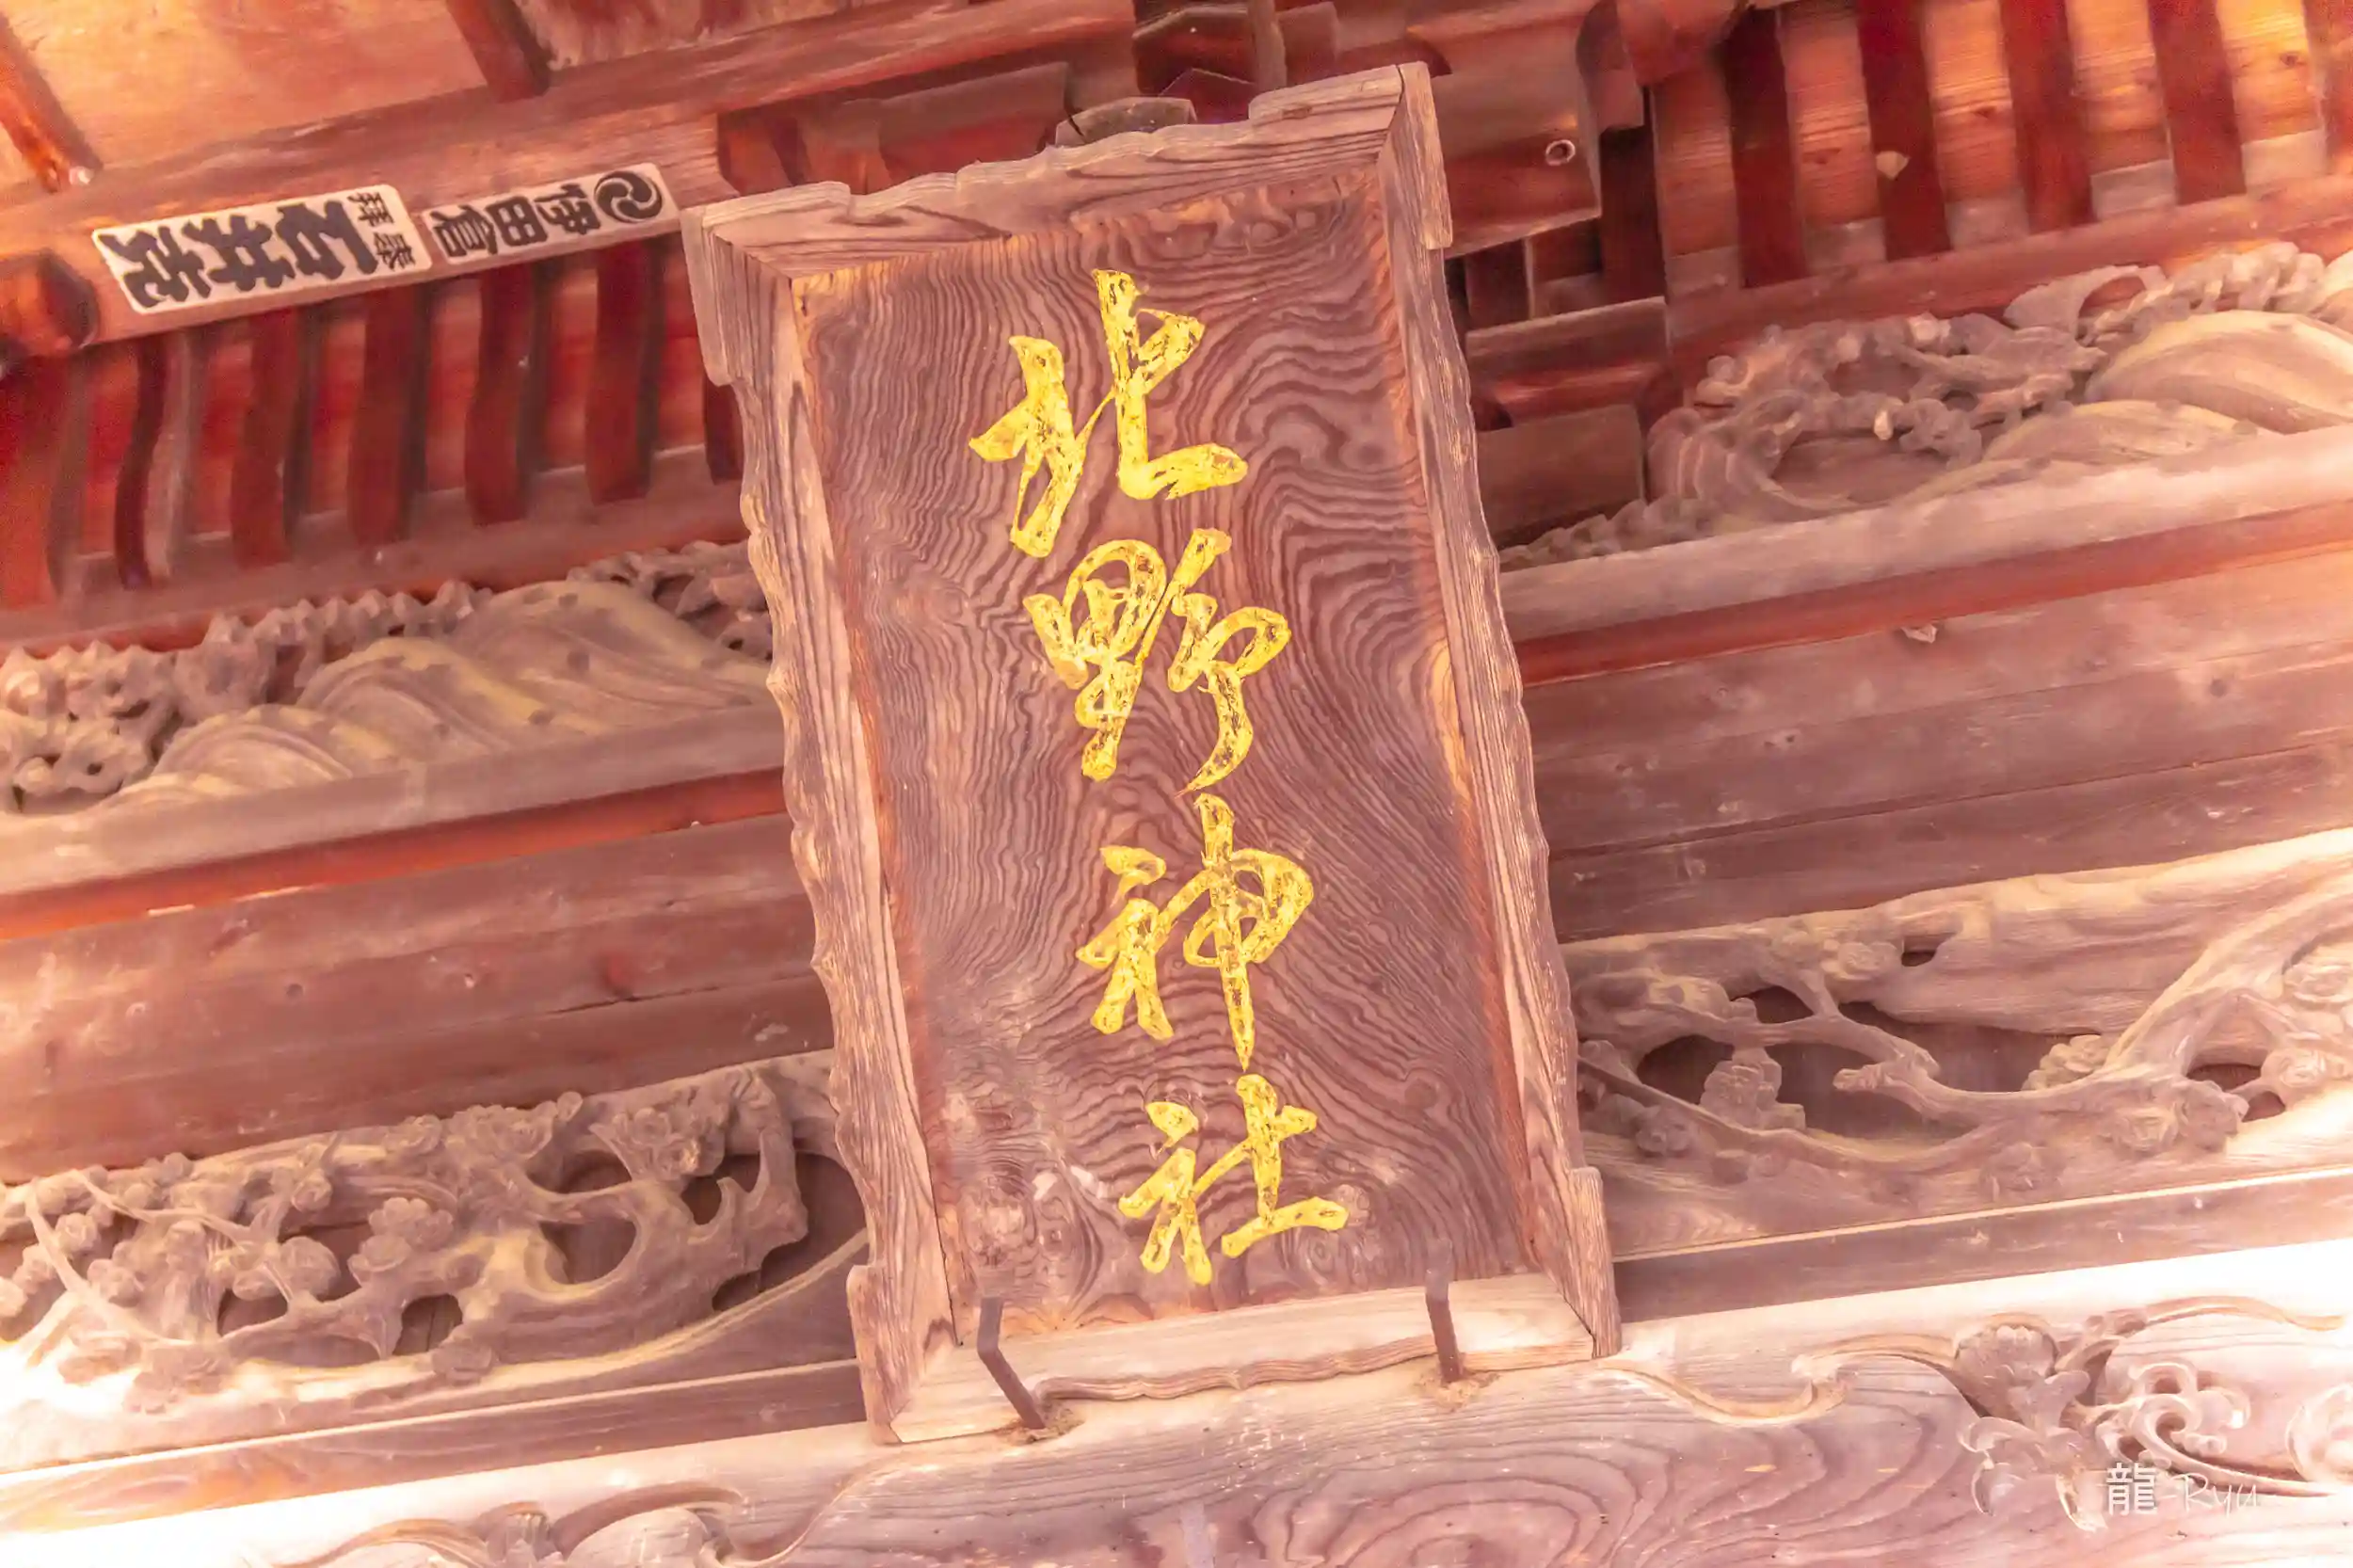 北野神社
伊田倉
拝恭
石井亮
龍-Ryu